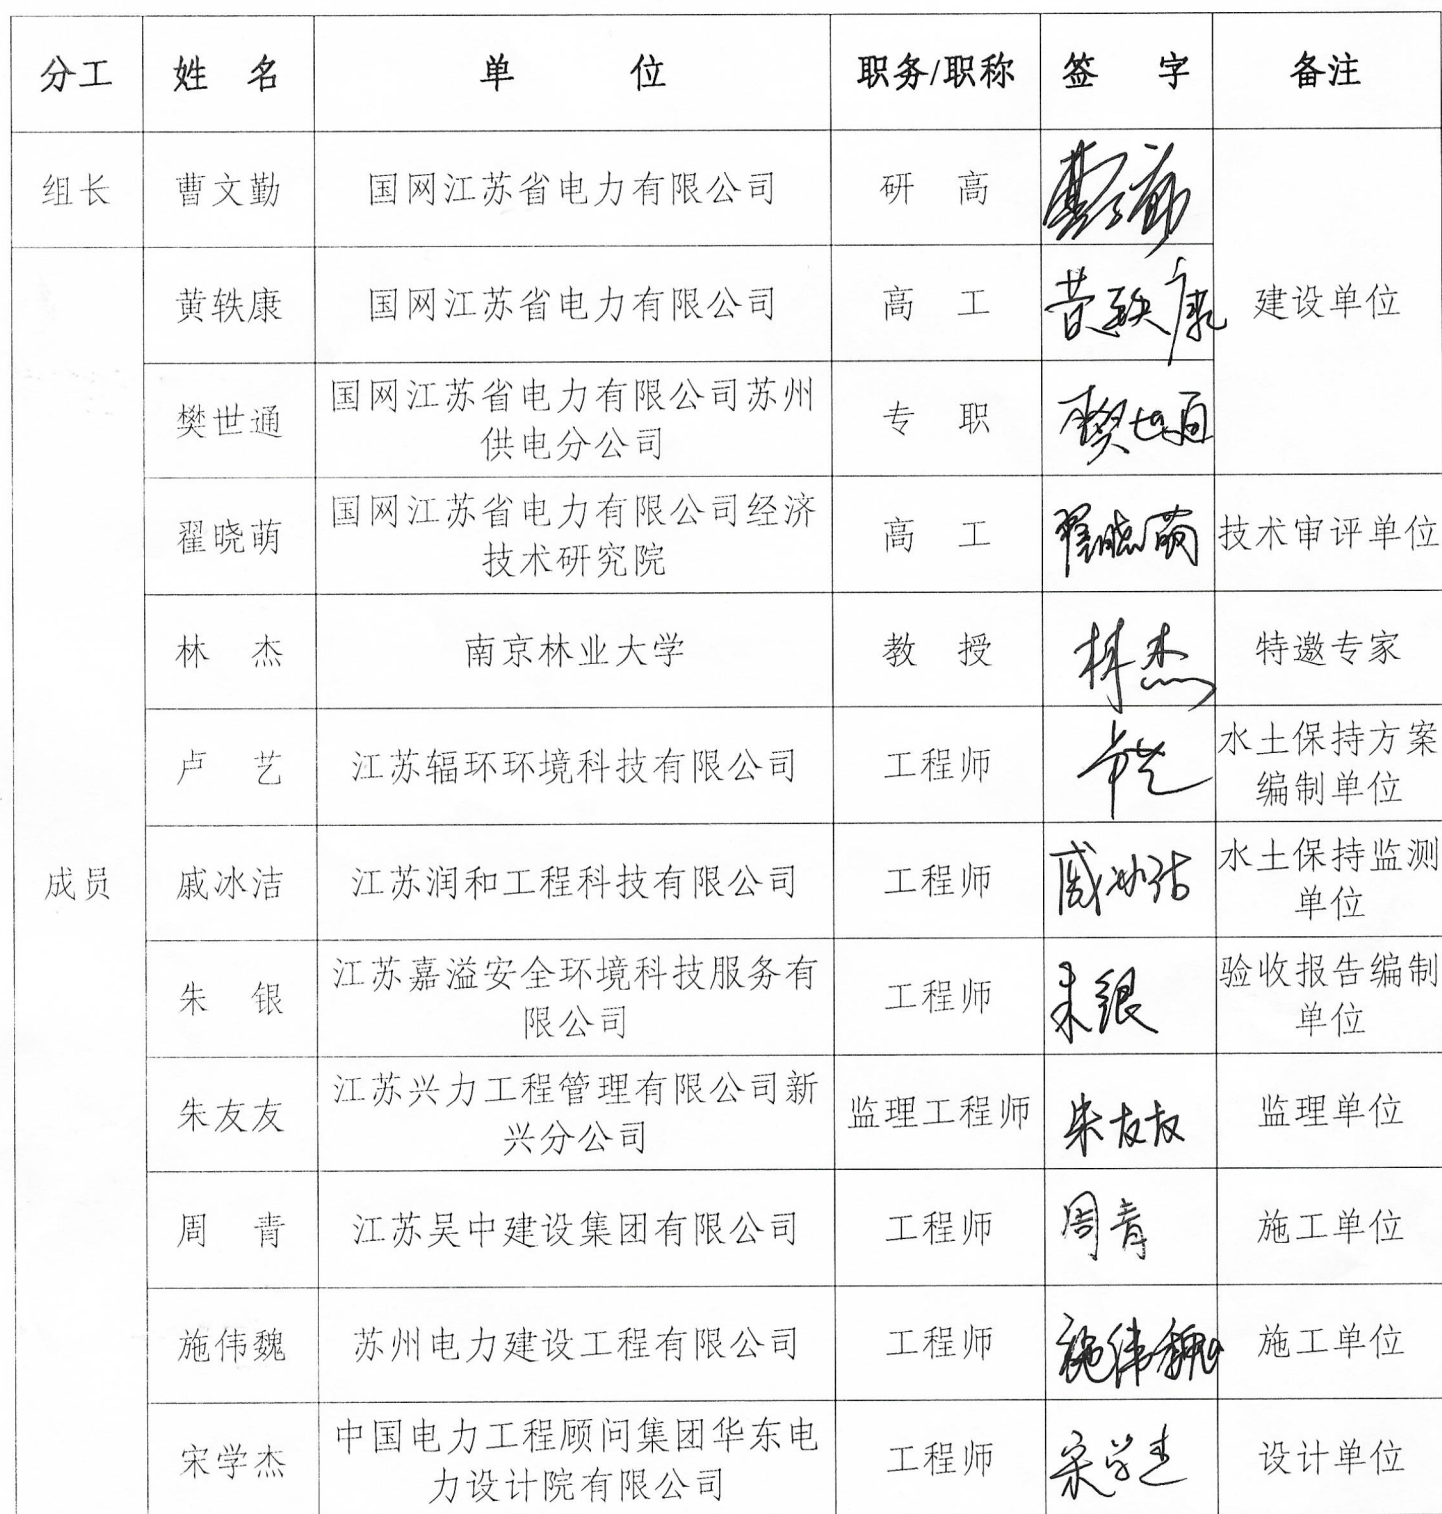 分工 姓 名 单 位 职务/职称 签 字 备注
组长 曹文勤 国网江苏省电力有限公司 研 高
黄轶康 国网江苏省电力有限公司 高 工 黄轶康 建设单位
樊世通 国网江苏省电力有限公司苏州
供电分公司 专 职 樊世通
翟晓萌 国网江苏省电力有限公司经济
技术研究院 高 工 翟晓萌 技术审评单位
林 杰 南京林业大学 教 授 林杰 特邀专家
卢 艺 江苏辐环环境科技有限公司 工程师 卢艺 水土保持方案
编制单位
成员 戚冰洁 江苏润和工程科技有限公司 工程师 戚冰洁 水土保持监测
单位
朱 银 江苏嘉溢安全环境科技服务有
限公司 工程师 朱银 验收报告编制
单位
朱友友 江苏兴力工程管理有限公司新
兴分公司 监理工程师 朱友友 监理单位
周 青 江苏吴中建设集团有限公司 工程师 周青 施工单位
施伟魏 苏州电力建设工程有限公司 工程师 施伟魏 施工单位
宋学杰 中国电力工程顾问集团华东电
力设计院有限公司 工程师 宋学杰 设计单位